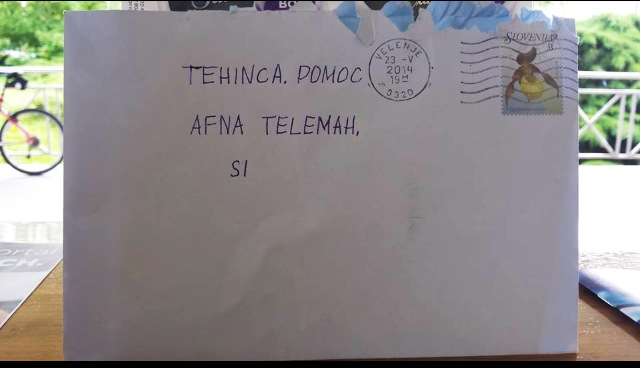 TEHINCA. POMOC
AFNA TELEMAH,
SI
VELENJE
23 -V
2014
3320
SLOVENIJA
B